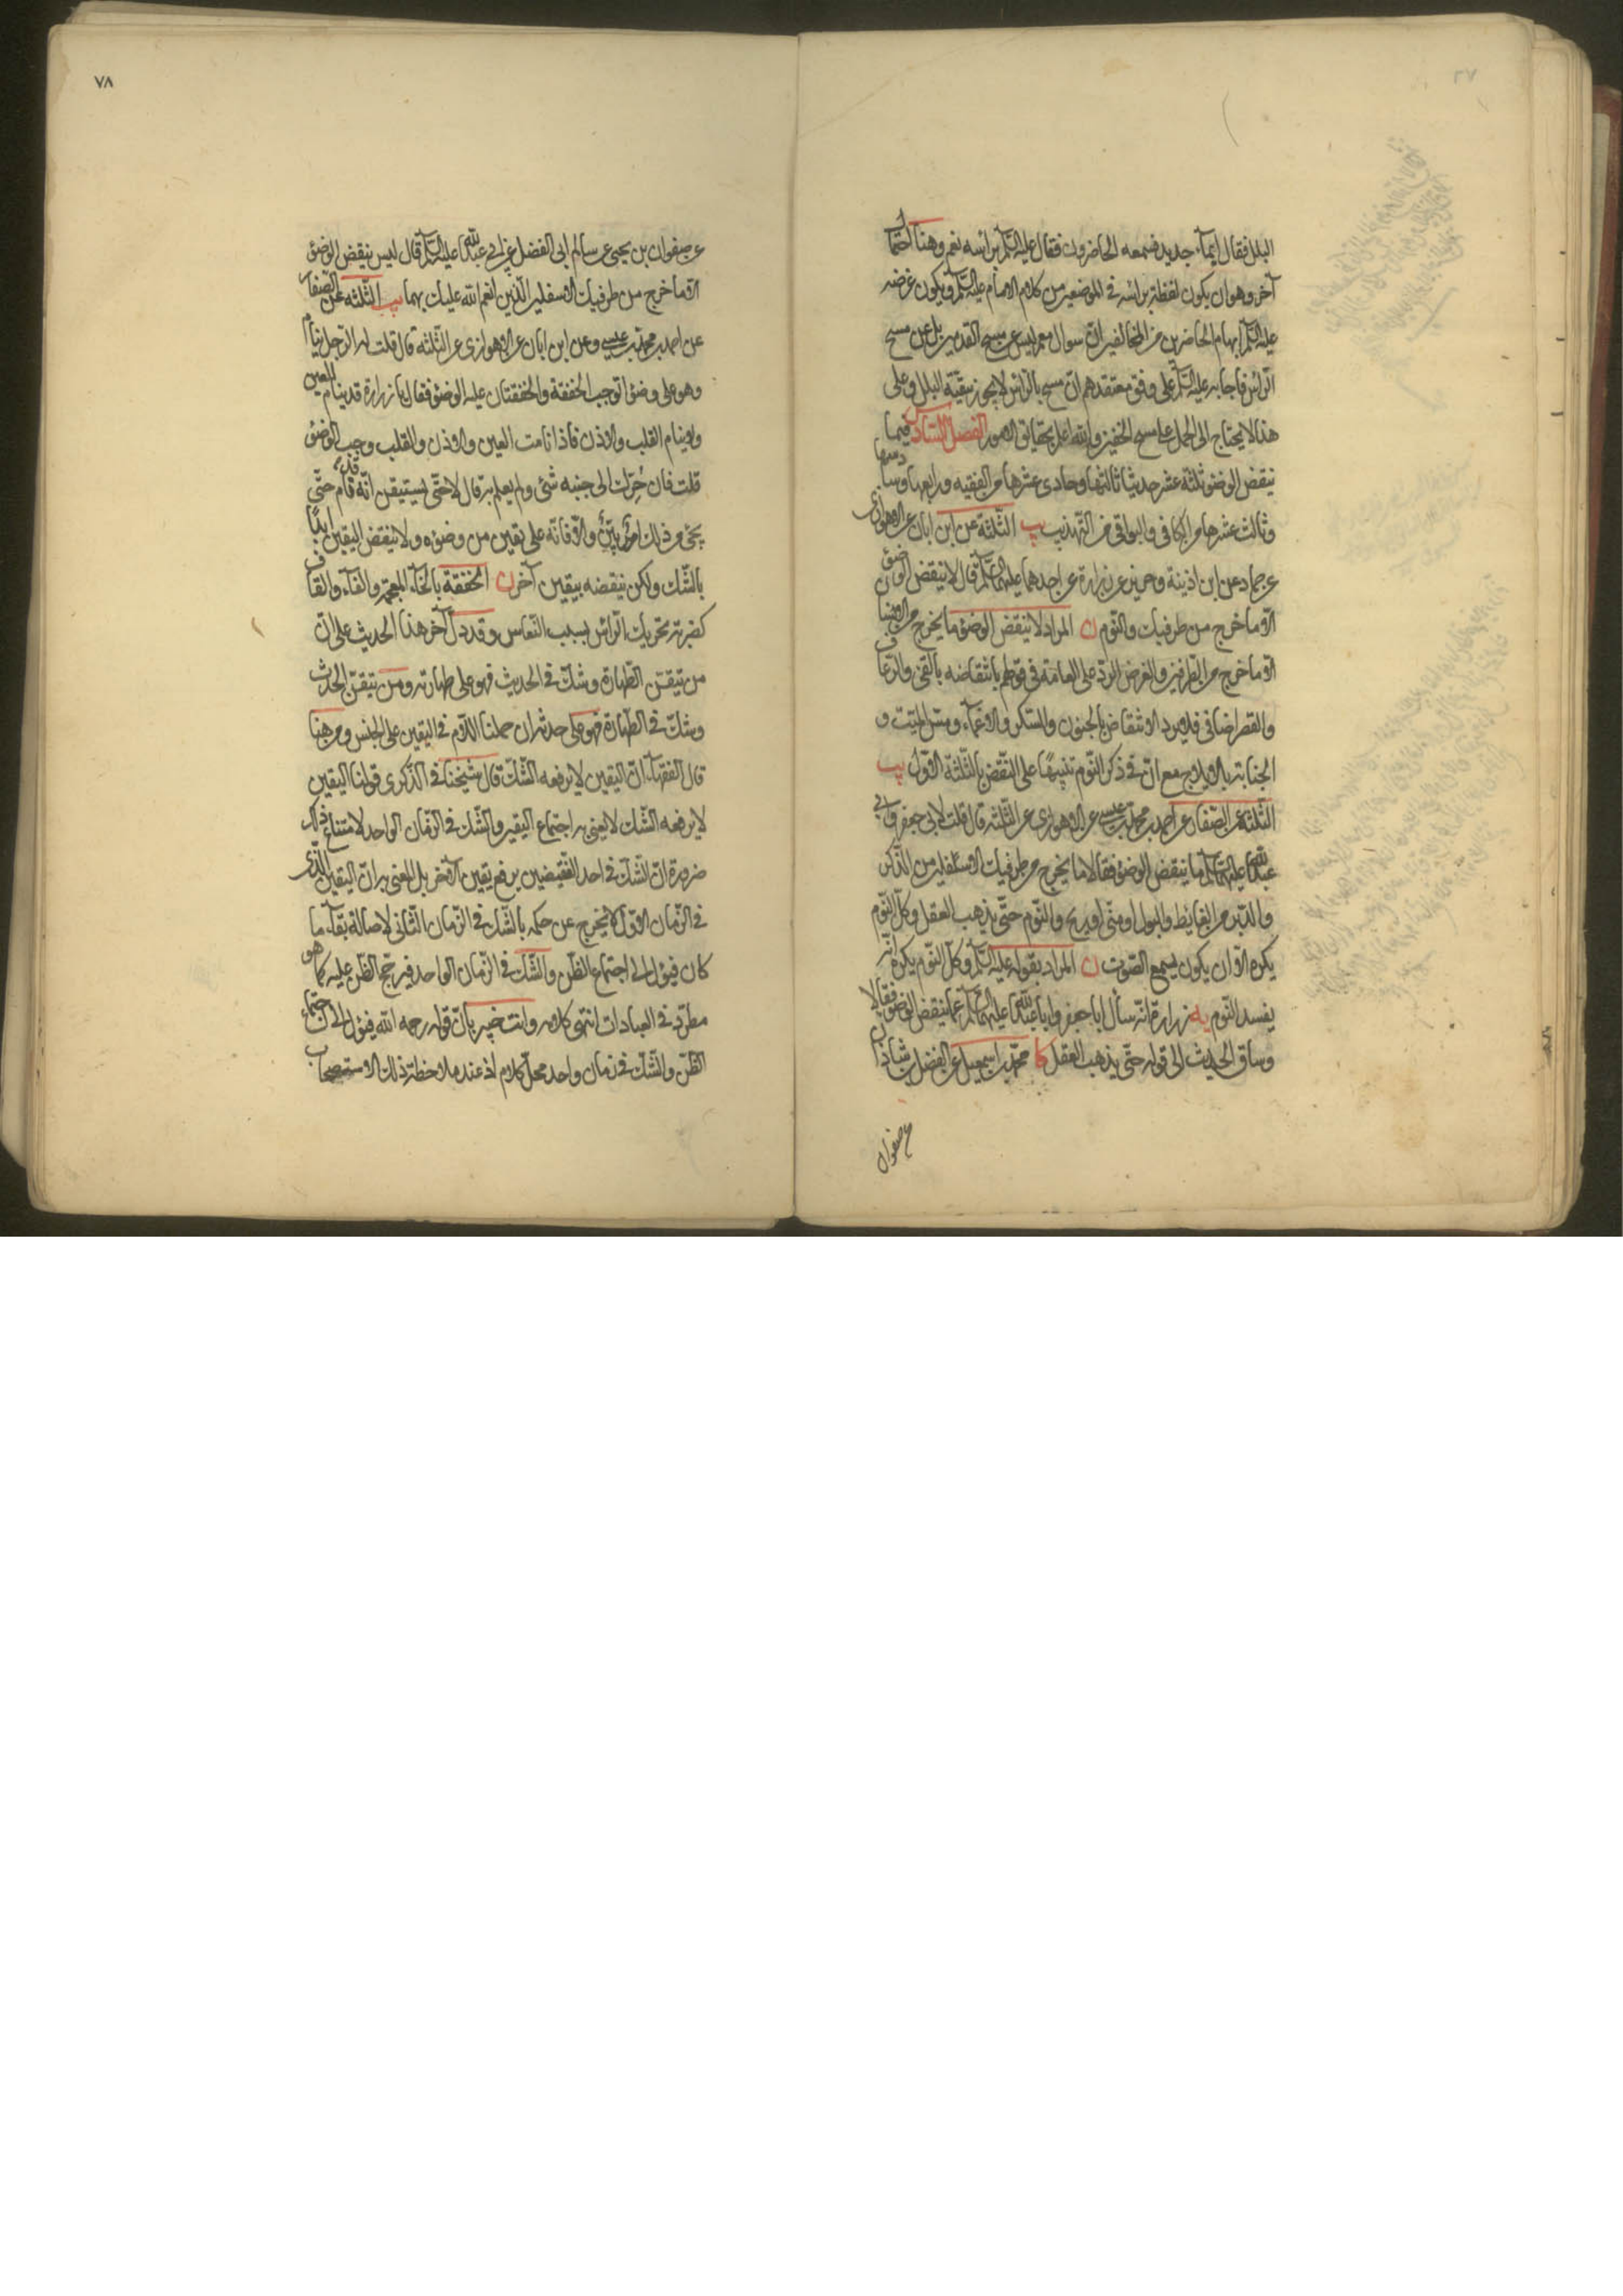 البلل فقال ابماء جديد فسمعه الحاضرون فقال عليه السلم برأسه نعم وهنا احتمال
آخر وهو ان يكون لفظة برأسه في الموضعين من كلام الامام عليه السلم ويكون غرضه
عليه السلم ايهام الحاضرين من المخالفين ان سوال معمر ليس عن مسح القدمين بل عن مسح
الرأس فاجابه عليه السلم على وفق معتقدهم ان مسح الرأس لا يجوز ببقية البلل وعلى
هذا لا يحتاج الى الحمل على مسح الخفين والله اعلم بحقائق الامور الفصل السادس فيما
ينقض الوضوء ثلثة عشر حديثا ثالثها وحادي عشرها من الفقيه ورابعها وسادسها
وثالث عشرها من الكافي والبواقي من التهذيب يب الثلثة عن ابن ابان عن الاهوازي
عن حماد عن ابن اذينة وحريز عن زرارة عن احدهما عليهما السلم قال لا ينقض الوضوء
الا ما خرج من طرفيك والنوم ن المراد لا ينقض الوضوء ما يخرج من الانسان
الا ما خرج من الطرفين والغرض الرد على العامة في قولهم بانتقاضه بالقئ والرعاف
والقصر اضافي فلا يرد الانتقاض بالجنون والسكر والاغماء ومس الميت و
الجنابة بالايلاج مع ان في ذكر النوم تنبيها على النقض بالثلثة الاول يب
الثلثة عن الصفار عن احمد بن محمد بن عيسى عن الاهوازي عن الثلثة قال قلت لابي جعفر وابي
عبد الله عليهما السلم ما ينقض الوضوء فقالا ما يخرج من طرفيك الاسفلين من الذكر
والدبر من الغايط والبول او مني او ريح والنوم حتى يذهب العقل وكل النوم
يكره الا ان يكون يسمع الصوت ن المراد بقوله عليه السلم وكل النوم يكره انه
يفسد النوم يه زرارة انه سأل ابا جعفر وابا عبد الله عليهما السلم عما ينقض الوضوء فقالا
وساق الحديث الى قوله حتى يذهب العقل كا محمد بن اسمعيل عن الفضل بن شاذان
عن صفوان
٧٨
عن صفوان بن يحيى عن سالم ابي الفضل عن ابي عبد الله عليه السلم قال ليس ينقض الوضوء
الا ما خرج من طرفيك الاسفلين الذين انعم الله عليك بهما يب الثلثه عن الصفار
عن احمد بن محمد بن عيسى وعن ابن ابان عن الاهوازي عن الثلثه قال قلت له الرجل ينام
وهو على وضوء اتوجب الخفقة والخفقتان عليه الوضوء فقال يا زرارة قد ينام العين
ولا ينام القلب والاذن فاذا نامت العين والاذن والقلب وجب الوضوء
قلت فان حرك الى جنبه شئ ولم يعلم به قال لا حتى يستيقن انه قد نام حتى
يجئ من ذلك امر بين والا فانه على يقين من وضوءه ولا ينقض اليقين ابدا
بالشك ولكن ينقضه بيقين آخر ن الخفقة بالخاء المعجمه والفاء والقاف
كضربة تحريك الرأس بسبب النعاس وقد دل آخر هذا الحديث على ان
من تيقن الطهارة وشك في الحدث فهو على طهارته ومن تيقن الحدث
وشك في الطهارة فهو على حدثه ان حملنا اللام في اليقين على الجنس ومن هنا
قال الفقهاء ان اليقين لا يرفعه الشك قال شيخنا في الذكرى قولنا اليقين
لا يرفعه الشك لا يعني به اجتماع اليقين والشك في الزمان الواحد لامتناع ذلك
ضرورة ان الشك في احد النقيضين يرفع يقين الآخر بل المعني به ان اليقين الذي
في الزمان الاول لا يخرج عن حكمه بالشك في الزمان الثاني لاصالة بقاء ما
كان فيؤل الى اجتماع الظن والشك في الزمان الواحد فيرجح الظن عليه كما هو
مطرد في العبادات انتهى كلامه وانت خبير بان قوله رحمه الله فيؤل الى اجتماع
الظن والشك في زمان واحد محل كلام اذ عند ملاحظة ذلك الاستصحاب